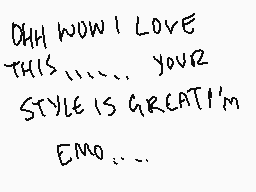 OHH WOW I LOVE
THIS...... YOUR
STYLE IS GREAT I'M
EMO....